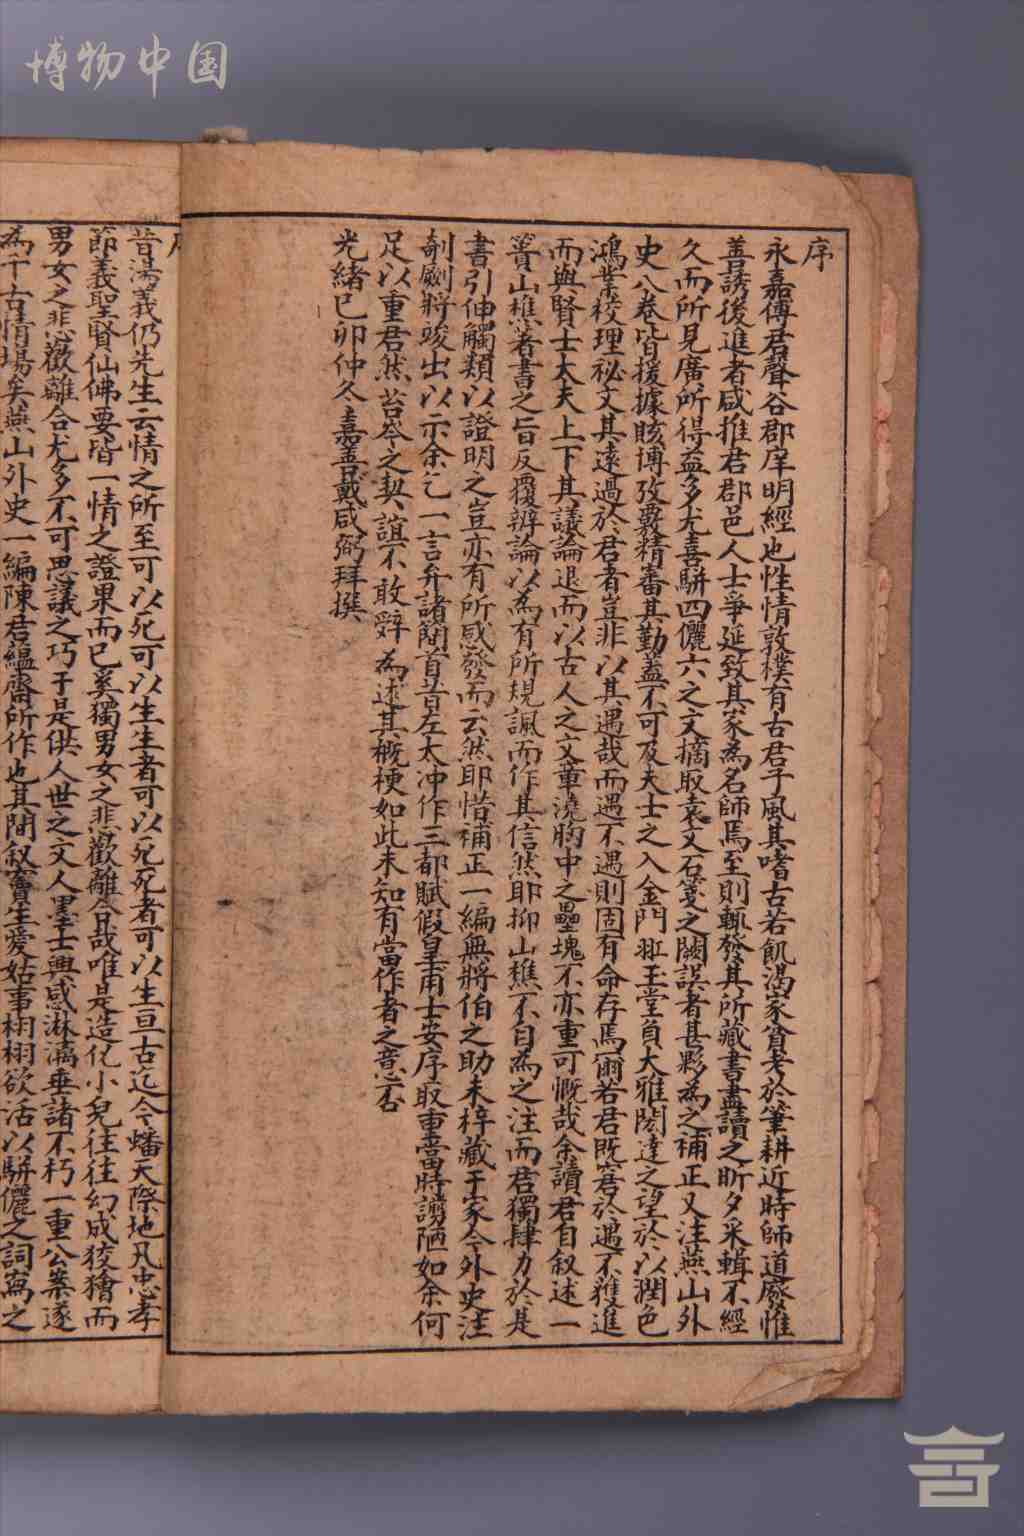 博物中国
序
永嘉傅君聲谷郡庠明經也性情敦樸有古君子風其嗜古若飢渴家貧老於筆耕近時師道廢惟
善誘後進者咸推君郡邑人士爭延致其家為名師焉至則輒發其所藏書盡讀之昕夕采輯不經
久而所見廣所得益多尤喜駢四儷六之文摘取袁文石箋之闕誤者甚夥為之補正又注燕山外
史八卷皆援據賅博攷覈精審其勤蓋不可及夫士之入金門玉堂負大雅閎達之望於以潤色
鴻業校理祕文其遠過於君者豈非以其遇哉而遇不遇則固有命存焉爾若君既窘於遇不獲進
而與賢士大夫上下其議論退而以古人之文章澆胸中之壘塊不亦重可慨哉余讀君自叙述一
簣山樵著書之旨反覆辨論以為有所規諷而作其信然耶抑山樵不自為之注而君獨肆力於是
書引伸觸類以證明之豈亦有所感發而云然耶惜補正一編無將伯之助未梓藏于家今外史注
剞劂將竣出以示余乞一言弁諸簡首昔左太冲作三都賦假皇甫士安序取重當時謭陋如余何
足以重君然苔岑之契誼不敢辭為述其概梗如此未知有當作者之意否
光緒己卯仲冬嘉善戴咸弼拜撰
昔湯義仍先生云情之所至可以死可以生生者可以死死者可以生亘古迄今蟠天際地凡忠孝
節義聖賢仙佛要皆一情之證果而已奚獨男女之悲歡離合哉唯是造化小兒往往幻成狡獪而
男女之悲歡離合尤多不可思議之巧于是供人世之文人墨士興感淋漓垂諸不朽一重公案遂
為千古情場矣燕山外史一編陳君蘊齋所作也其間叙竇生愛姑事栩栩欲活以駢儷之詞寫之